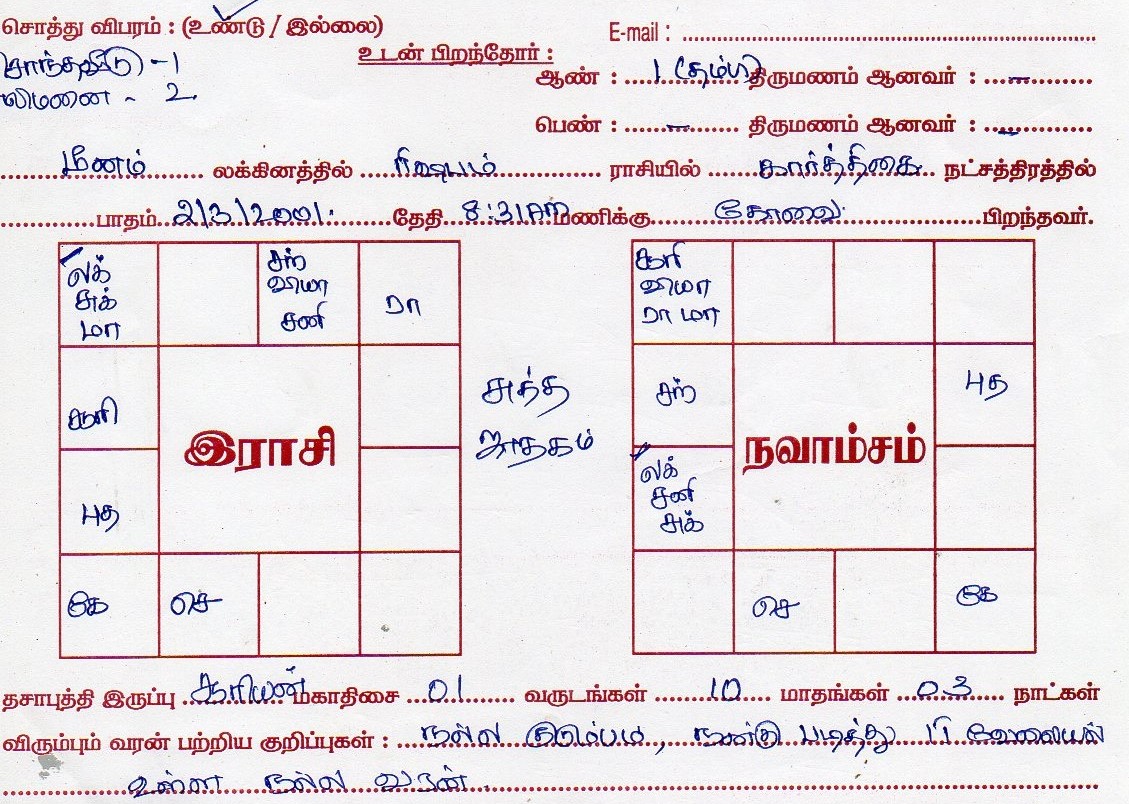 சொத்து விபரம் : (உண்டு / இல்லை)
E-mail :
சொந்தவீடு - 1
உடன் பிறந்தோர் :
ஆண் : 1 (தம்பி) திருமணம் ஆனவர் : –
லிமனை - 2
பெண் : – திருமணம் ஆனவர் : –
மீனம் லக்கினத்தில் ரிஷபம் ராசியில் கார்த்திகை நட்சத்திரத்தில்
பாதம் 2/3/2001. தேதி 8:31AM மணிக்கு கோவை பிறந்தவர்.
லக்
சுக்
மா
சந்
வியா
சனி
ரா
சூரி
புத
கே
செ
இராசி
சுத்த
ஜாதகம்
சூரி
வியா
ரா மா
சந்
புத
லக்
சனி
சுக்
செ
கே
நவாம்சம்
தசாபுத்தி இருப்பு சூரியன் மகாதிசை 01 வருடங்கள் 10 மாதங்கள் 03 நாட்கள்
விரும்பும் வரன் பற்றிய குறிப்புகள் : நல்ல குடும்பம், நன்கு படித்து IT வேலையில்
உள்ள நல்ல வரன்.